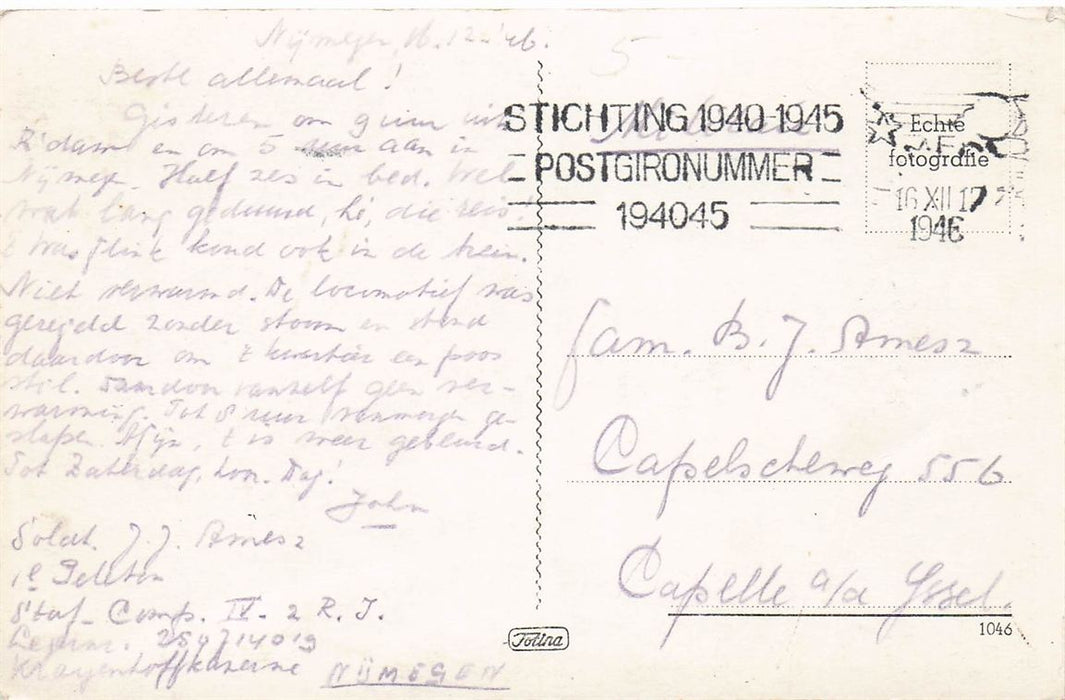 Nijmegen, 16.12-'46.
Beste allemaal!
Gisteren om 9 uur uit
R'dam en om 5 uur aan in
Nijmegen. Half zes in bed. Wel
wat lang geduurd, hè, die reis!
't Was flink koud ook in de trein.
Niet verwarmd. De locomotief was
geregeld zonder stoom en stond
daardoor om 't kwartier een poos
stil. Daardoor vanzelf geen ver-
warming. Tot 8 uur vanmorgen ge-
slapen. Afijn, 't is weer gebeurd.
Tot Zaterdag, hoor. Dag!
John
Soldt. J. J. Amesz
1e Peleton
Staf-Comp. IV-2 R.I.
Legernr. 254714019
Krayenhoffkazerne NIJMEGEN
5
STICHTING 1940-1945
POSTGIRONUMMER
194045
Echte
fotografie
16 XII 17
1946
Fam. B. J. Amesz
Capelscheweg 556
Capelle a/d IJssel.
1046
Fotina